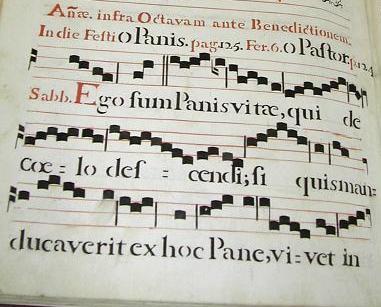 Añæ. infra Octavam ante Benedictionem.
In die Festi O Panis. pag. 125. Fer. 6. O Pastor. p. 124.
Sabb. Ego sum Panis vitæ, qui de
cœ = lo des = cendi; si quis man=
ducaverit ex hoc Pane, vi = vet in